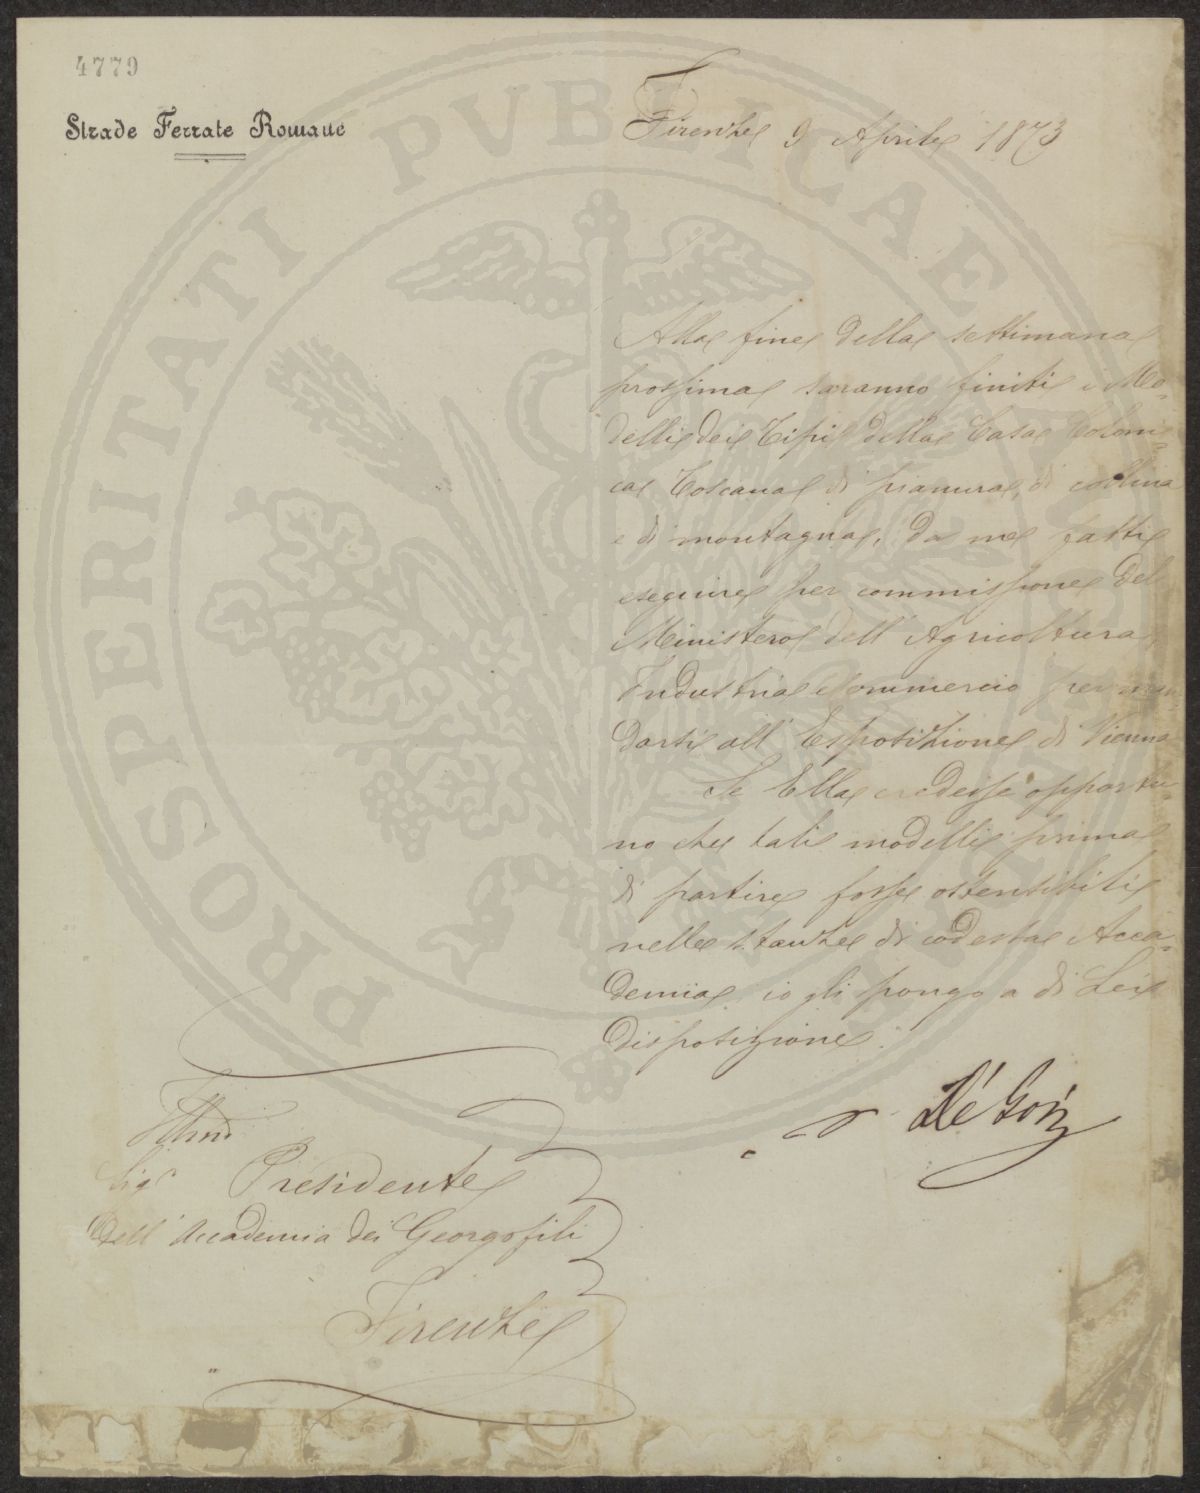 4779
Strade Ferrate Romane
Firenze 9 Aprile 1873
Alla fine della settimana
prossima saranno finiti i Mo-
delli dei Tipi della Casa Coloni-
ca Toscana di pianura, di collina
e di montagna, da me fatti
eseguire per commissione del
Ministero dell' Agricoltura
Industria e Commercio per man
darsi all' Esposizione di Vienna
Se Ella credesse opportu-
no che tali modelli prima
di partire fosse ostensibili
nelle stanze di codesta Acca-
demia io gli pongo a di Lei
disposizione.
Illmo
Sigr Presidente
Dell' Accademia dei Georgofili
Firenze
PROSPERITATI PVBLICAE